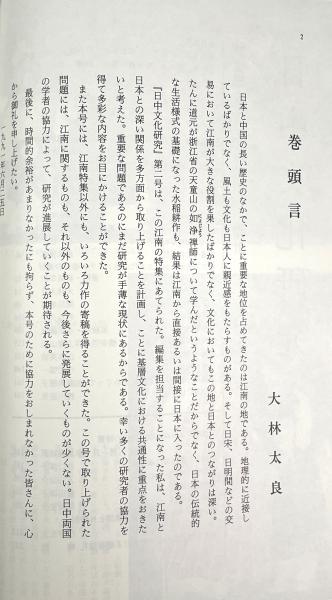 2
巻頭言
大林太良
日本と中国の長い歴史のなかで、ことに重要な地位を占めてきたのは江南の地である。地理的に近接し
ているばかりでなく、風土も文化も日本人に親近感をもたらすものがある。そして日宋、日明間などの交
易において江南が大きな役割を果したばかりでなく、文化においてもこの地と日本とのつながりは深い。
たんに道元が浙江省の天童山の如浄禅師について学んだというようなことだからでなく、日本の伝統的
な生活様式の基礎になった水稲耕作も、結果は江南から直接あるいは間接に日本に入ったのである。
『日中文化研究』第二号は、この江南の特集にあてられた。編集を担当することになった私は、江南と
日本との深い関係を多方面から取り上げることを計画し、ことに基層文化における共通性に重点をおきた
いと考えた。重要な問題であるのにまだ研究が手薄な現状にあるからである。幸い多くの研究者の協力を
得て多彩な内容をお目にかけることができた。
また本号には、江南特集以外にも、いろいろ力作の寄稿を得ることができた。この号で取り上げられた
問題には、江南に関するものも、それ以外のものも、今後さらに発展していくものが少くない。日中両国
の学者の協力によって、研究が進展していくことが期待される。
最後に、時間的余裕があまりなかったにも拘らず、本号のために協力をおしまれなかった皆さんに、心
から御礼を申し上げたい。
一九九一年六月二五日